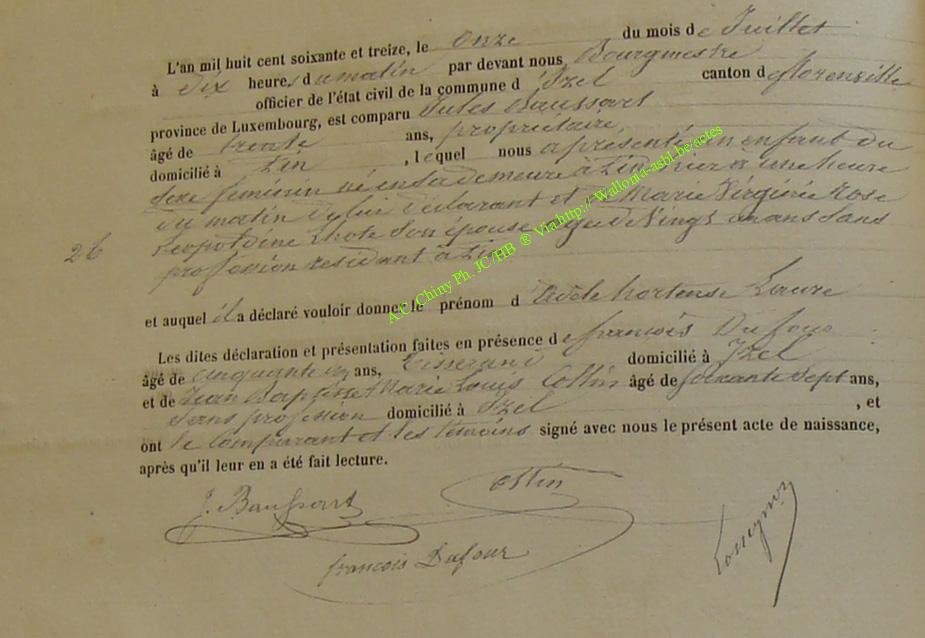 L'an mil huit cent soixante et treize, le onze du mois de Juillet
à dix heures, du matin par devant nous Bourgmestre
officier de l'état civil de la commune d'Izel canton de florenville
province de Luxembourg, est comparu Jules Baussart
âgé de trente ans, propriétaire,
domicilié à Pin, lequel nous a présenté un enfant du
sexe féminin né en sa demeure à Pin hier à une heure
du matin de lui déclarant et Marie Virginie Rose
26 Léopoldine son épouse agée de Vingt ans sans
profession résidant à
et auquel il a déclaré vouloir donner le prénom d'Adèle hortense Laure
Les dites déclaration et présentation faites en présence de françois Dufour
âgé de cinquante ans, tisserand domicilié à Izel
et de Jean Baptiste Marie Louis Collin âgé de soixante sept ans,
sans profession domicilié à Izel, et
ont le comparant et les témoins signé avec nous le présent acte de naissance,
après qu'il leur en a été fait lecture.
J. Baussart
françois Dufour
A.C. Chiny Ph. JC/HB ® Via http://Wallonia-asbl.be/actes